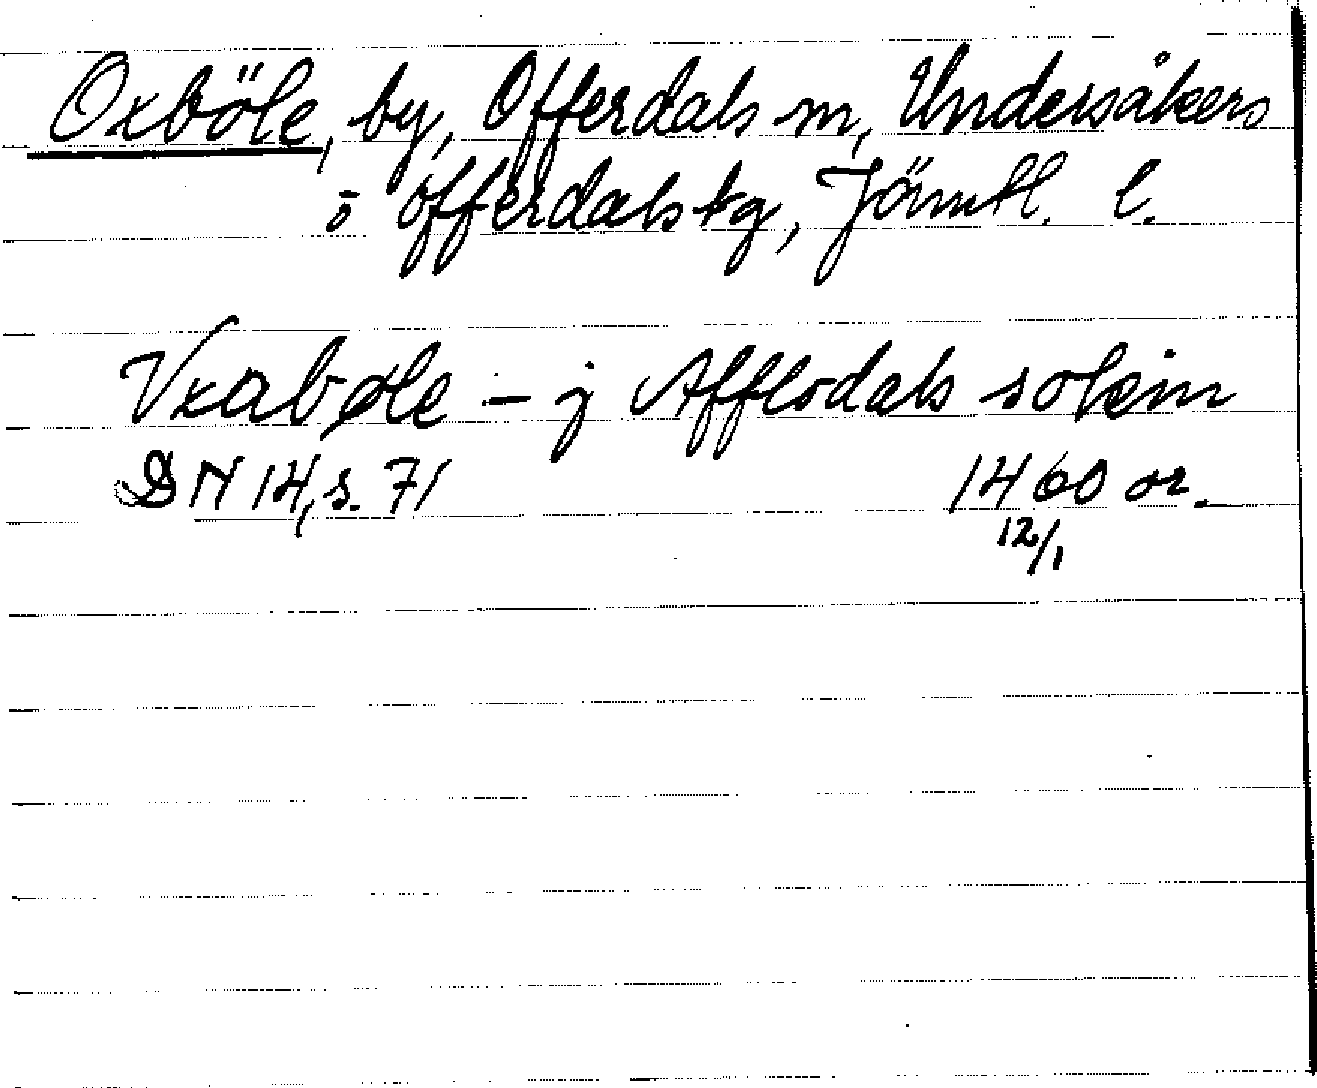 Oxböle, by, Offerdals sn, Undersåkers
o Offerdals tg, Jämtl. l.
Vxabøle - j Afflodals sokn
DN 14, s. 71 1460 or.
12/1